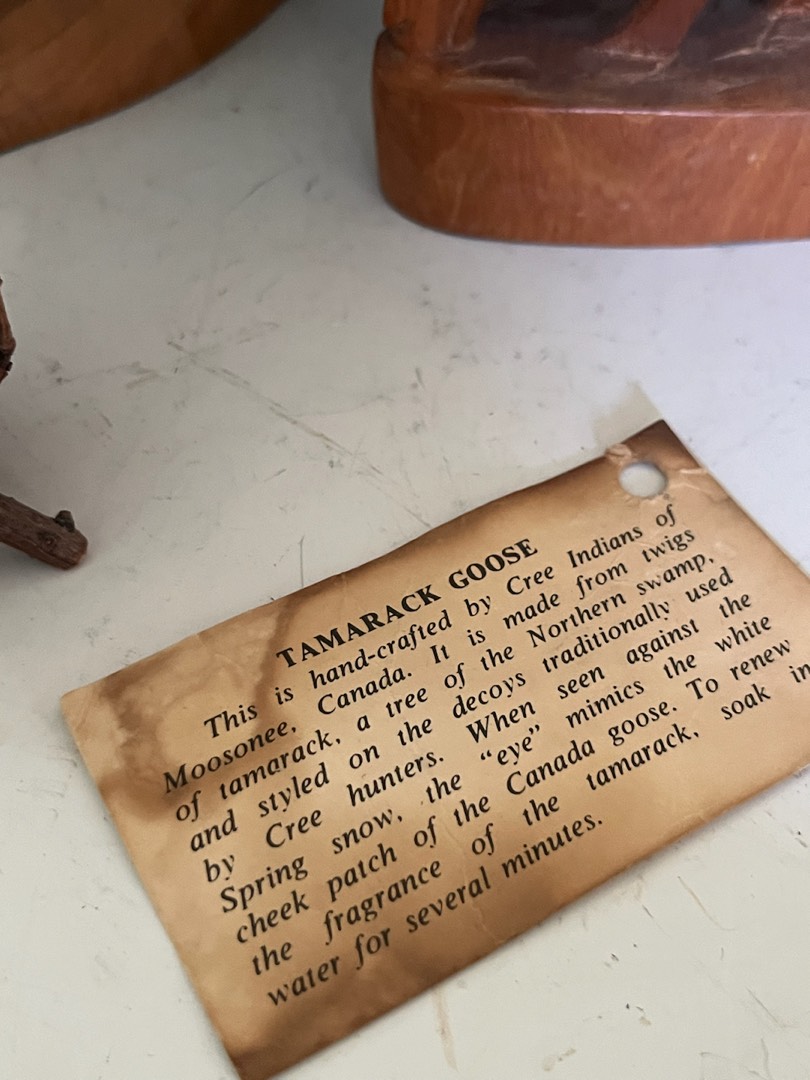 TAMARACK GOOSE
This is hand-crafted by Cree Indians of
Moosonee, Canada. It is made from twigs
of tamarack, a tree of the Northern swamp,
and styled on the decoys traditionally used
by Cree hunters. When seen against the
Spring snow, the “eye” mimics the white
cheek patch of the Canada goose. To renew
the fragrance of the tamarack, soak in
water for several minutes.